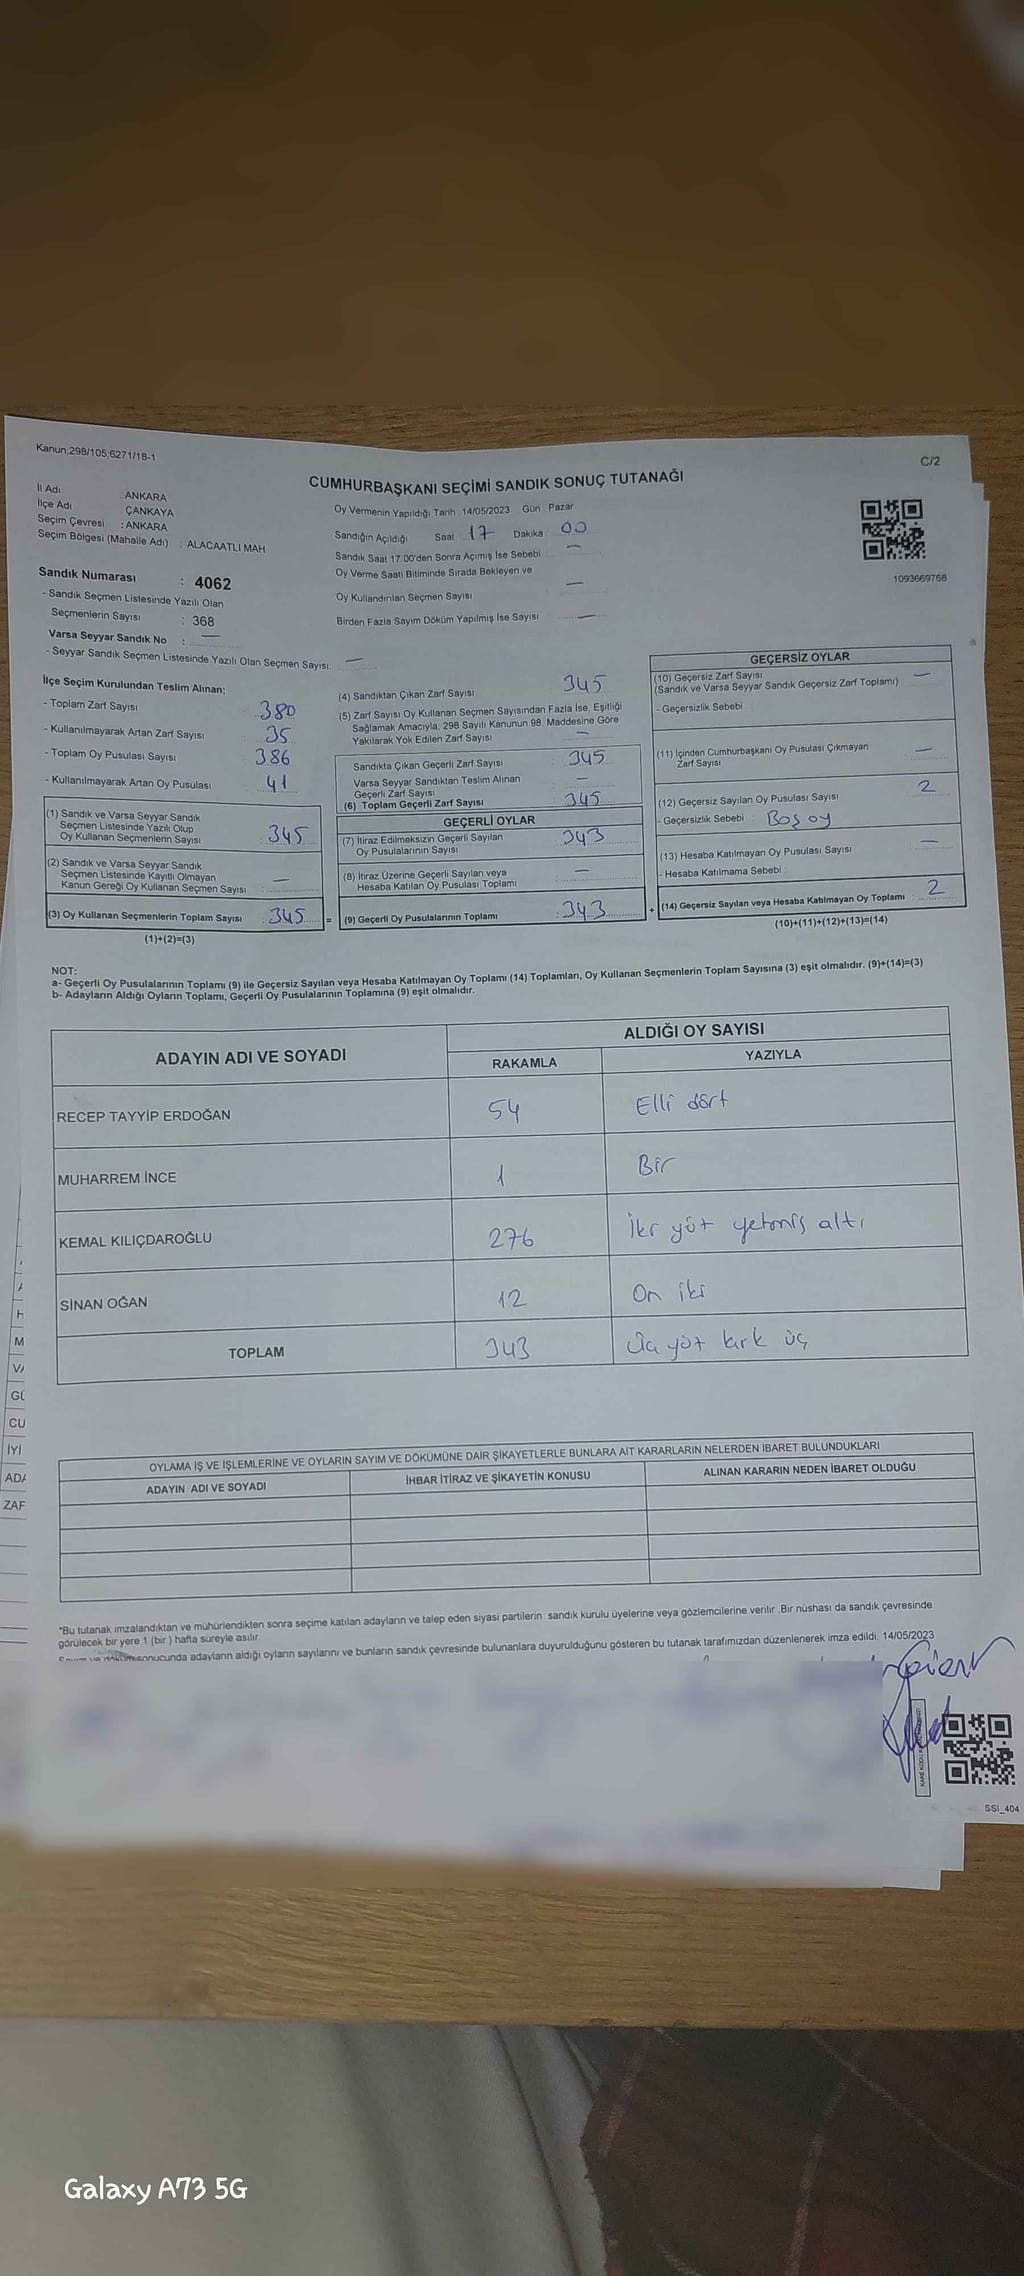 Kanun;298/105;6271/18-1
C/2
CUMHURBAŞKANI SEÇİMİ SANDIK SONUÇ TUTANAĞI
İl Adı : ANKARA
İlçe Adı : ÇANKAYA
Seçim Çevresi : ANKARA
Seçim Bölgesi (Mahalle Adı) : ALACAATLI MAH
Sandık Numarası : 4062
- Sandık Seçmen Listesinde Yazılı Olan
Seçmenlerin Sayısı : 368
Varsa Seyyar Sandık No : —
- Seyyar Sandık Seçmen Listesinde Yazılı Olan Seçmen Sayısı: —
Oy Vermenin Yapıldığı Tarih : 14/05/2023 Gün : Pazar
Sandığın Açıldığı Saat 17 Dakika 00
Sandık Saat 17:00'den Sonra Açımış İse Sebebi —
Oy Verme Saati Bitiminde Sırada Bekleyen ve
Oy Kullandırılan Seçmen Sayısı —
Birden Fazla Sayım Döküm Yapılmış İse Sayısı —
1093669768
İlçe Seçim Kurulundan Teslim Alınan;
- Toplam Zarf Sayısı : 380
- Kullanılmayarak Artan Zarf Sayısı : 35
- Toplam Oy Pusulası Sayısı : 386
- Kullanılmayarak Artan Oy Pusulası : 41
(1) Sandık ve Varsa Seyyar Sandık
Seçmen Listesinde Yazılı Olup
Oy Kullanan Seçmenlerin Sayısı : 345
(2) Sandık ve Varsa Seyyar Sandık
Seçmen Listesinde Kayıtlı Olmayan
Kanun Gereği Oy Kullanan Seçmen Sayısı : —
(3) Oy Kullanan Seçmenlerin Toplam Sayısı : 345 =
(1)+(2)=(3)
(4) Sandıktan Çıkan Zarf Sayısı : 345
(5) Zarf Sayısı Oy Kullanan Seçmen Sayısından Fazla İse, Eşitliği
Sağlamak Amacıyla; 298 Sayılı Kanunun 98. Maddesine Göre
Yakılarak Yok Edilen Zarf Sayısı —
Sandıkta Çıkan Geçerli Zarf Sayısı : 345
Varsa Seyyar Sandıktan Teslim Alınan
Geçerli Zarf Sayısı —
(6) Toplam Geçerli Zarf Sayısı : 345
GEÇERLİ OYLAR
(7) İtiraz Edilmeksizin Geçerli Sayılan
Oy Pusulalarının Sayısı : 343
(8) İtiraz Üzerine Geçerli Sayılan veya
Hesaba Katılan Oy Pusulası Toplamı : —
(9) Geçerli Oy Pusulalarının Toplamı : 343 +
GEÇERSİZ OYLAR
(10) Geçersiz Zarf Sayısı —
(Sandık ve Varsa Seyyar Sandık Geçersiz Zarf Toplamı)
- Geçersizlik Sebebi
(11) İçinden Cumhurbaşkanı Oy Pusulası Çıkmayan
Zarf Sayısı —
(12) Geçersiz Sayılan Oy Pusulası Sayısı 2
- Geçersizlik Sebebi : Boş oy
(13) Hesaba Katılmayan Oy Pusulası Sayısı —
- Hesaba Katılmama Sebebi
(14) Geçersiz Sayılan veya Hesaba Katılmayan Oy Toplamı : 2
(10)+(11)+(12)+(13)=(14)
NOT:
a- Geçerli Oy Pusulalarının Toplamı (9) ile Geçersiz Sayılan veya Hesaba Katılmayan Oy Toplamı (14) Toplamları, Oy Kullanan Seçmenlerin Toplam Sayısına (3) eşit olmalıdır. (9)+(14)=(3)
b- Adayların Aldığı Oyların Toplamı, Geçerli Oy Pusulalarının Toplamına (9) eşit olmalıdır.
ADAYIN ADI VE SOYADI
ALDIĞI OY SAYISI
RAKAMLA YAZIYLA
RECEP TAYYİP ERDOĞAN 54 Elli dört
MUHARREM İNCE 1 Bir
KEMAL KILIÇDAROĞLU 276 İki yüz yetmiş altı
SİNAN OĞAN 12 On iki
TOPLAM 343 Üç yüz kırk üç
OYLAMA İŞ VE İŞLEMLERİNE VE OYLARIN SAYIM VE DÖKÜMÜNE DAİR ŞİKAYETLERLE BUNLARA AİT KARARLARIN NELERDEN İBARET BULUNDUKLARI
ADAYIN ADI VE SOYADI
İHBAR İTİRAZ VE ŞİKAYETİN KONUSU
ALINAN KARARIN NEDEN İBARET OLDUĞU
*Bu tutanak imzalandıktan ve mühürlendikten sonra seçime katılan adayların ve talep eden siyasi partilerin sandık kurulu üyelerine veya gözlemcilerine verilir. Bir nüshası da sandık çevresinde
görülecek bir yere 1 (bir) hafta süreyle asılır.
Sayım ve döküm sonucunda adayların aldığı oyların sayılarını ve bunların sandık çevresinde bulunanlara duyurulduğunu gösteren bu tutanak tarafımızdan düzenlenerek imza edildi. 14/05/2023
SSI_404
M
GÜ
CU
İYİ
ADA
ZAF
Galaxy A73 5G